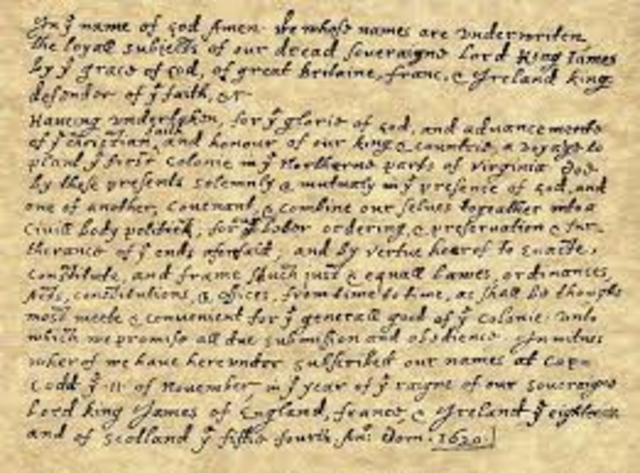 In yͤ name of god Amen. We whose names are underwriten,
the loyall subjects of our dread soveraigne Lord King James
by yͤ grace of god, of great Britaine, franc, & Ireland king,
defender of yͤ faith, &c
Haveing undertaken, for yͤ glorie of god, and advancemente
of yͤ christian faith and honour of our king & countrie, a voyage to
plant yͤ first colonie in yͤ Northerne parts of Virginia. Doe
by these presents solemnly & mutualy in yͤ presence of god, and
one of another, covenant, & combine our selves togeather into a
civill body politick, for our better ordering, & preservation & fur-
therance of yͤ ends aforesaid; and by vertue hearof to enacte,
constitute, and frame shuch just & equall Lawes, ordinances,
Acts, constitutions, & offices, from time to time, as shall be thought
most meete & convenient for yͤ generall good of yͤ colonie: unto
which we promise all due submission and obedience. In witnes
wherof we have hereunder subscribed our names at Cape
Codd yͤ ·11· of November, in yͤ year of yͤ raigne of our soveraigne
Lord king James of England, france, & Ireland yͤ eighteen
and of Scotland yͤ fiftie fourth. An: Dom. 1620.